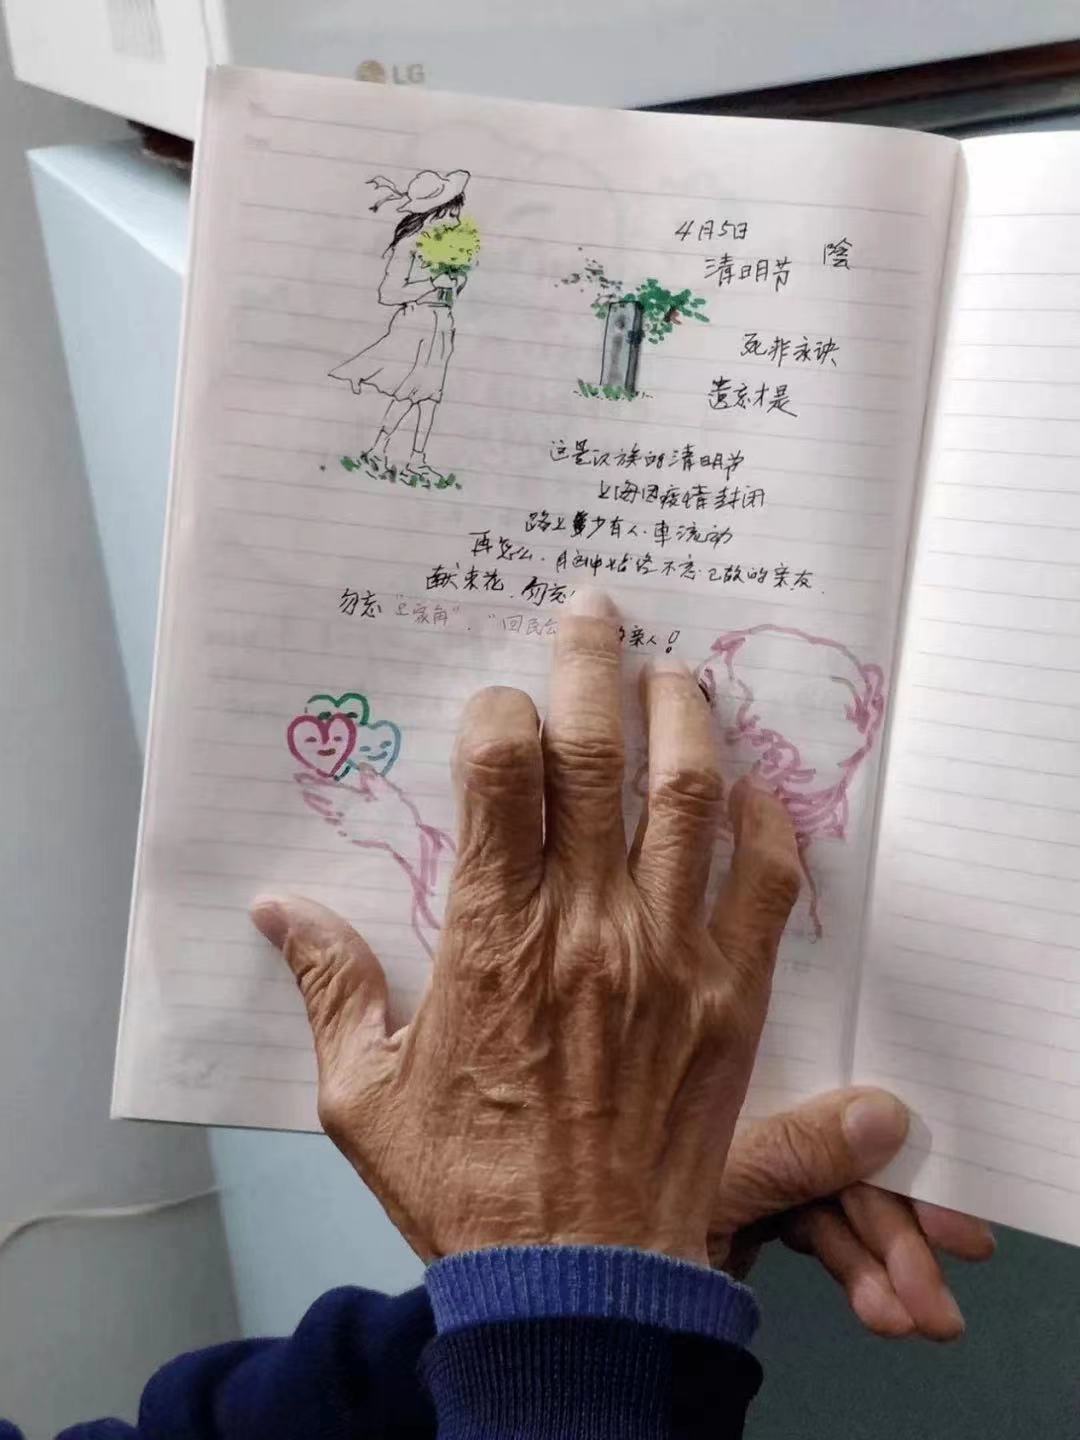 LG
4月5日 陰
清明节
死非永诀
遗忘才是
这是汉族的清明节
上海因疫情封闭
路上少有人、車流动
再怎么、脑中始终不忘已故的亲友
献束花、勿忘
勿忘“ 家角”、“回民公 亲人!